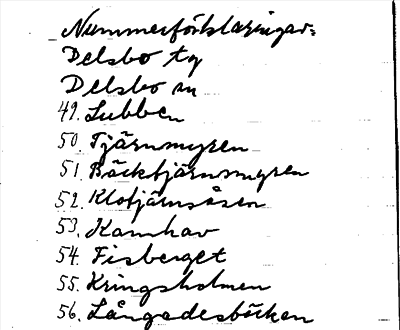 Nummerförklaringar:
Delsbo tg
Delsbo sn
49. Lubben
50. Tjärnmyren
51. Bäcktjärnsmyren
52. Klotjärnsåsen
53. Kamhav
54. Fisberget
55. Kringsholmen
56. Långadesbäcken